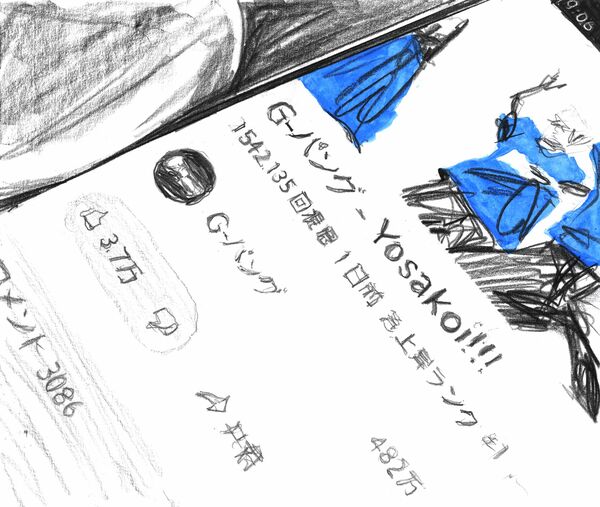 9:06
G-バング - Yosakoi!!!!
1542.135回視聴 1日前 急上昇ランク #1
G-バング 482万
3.7万
共有
コメント 3086